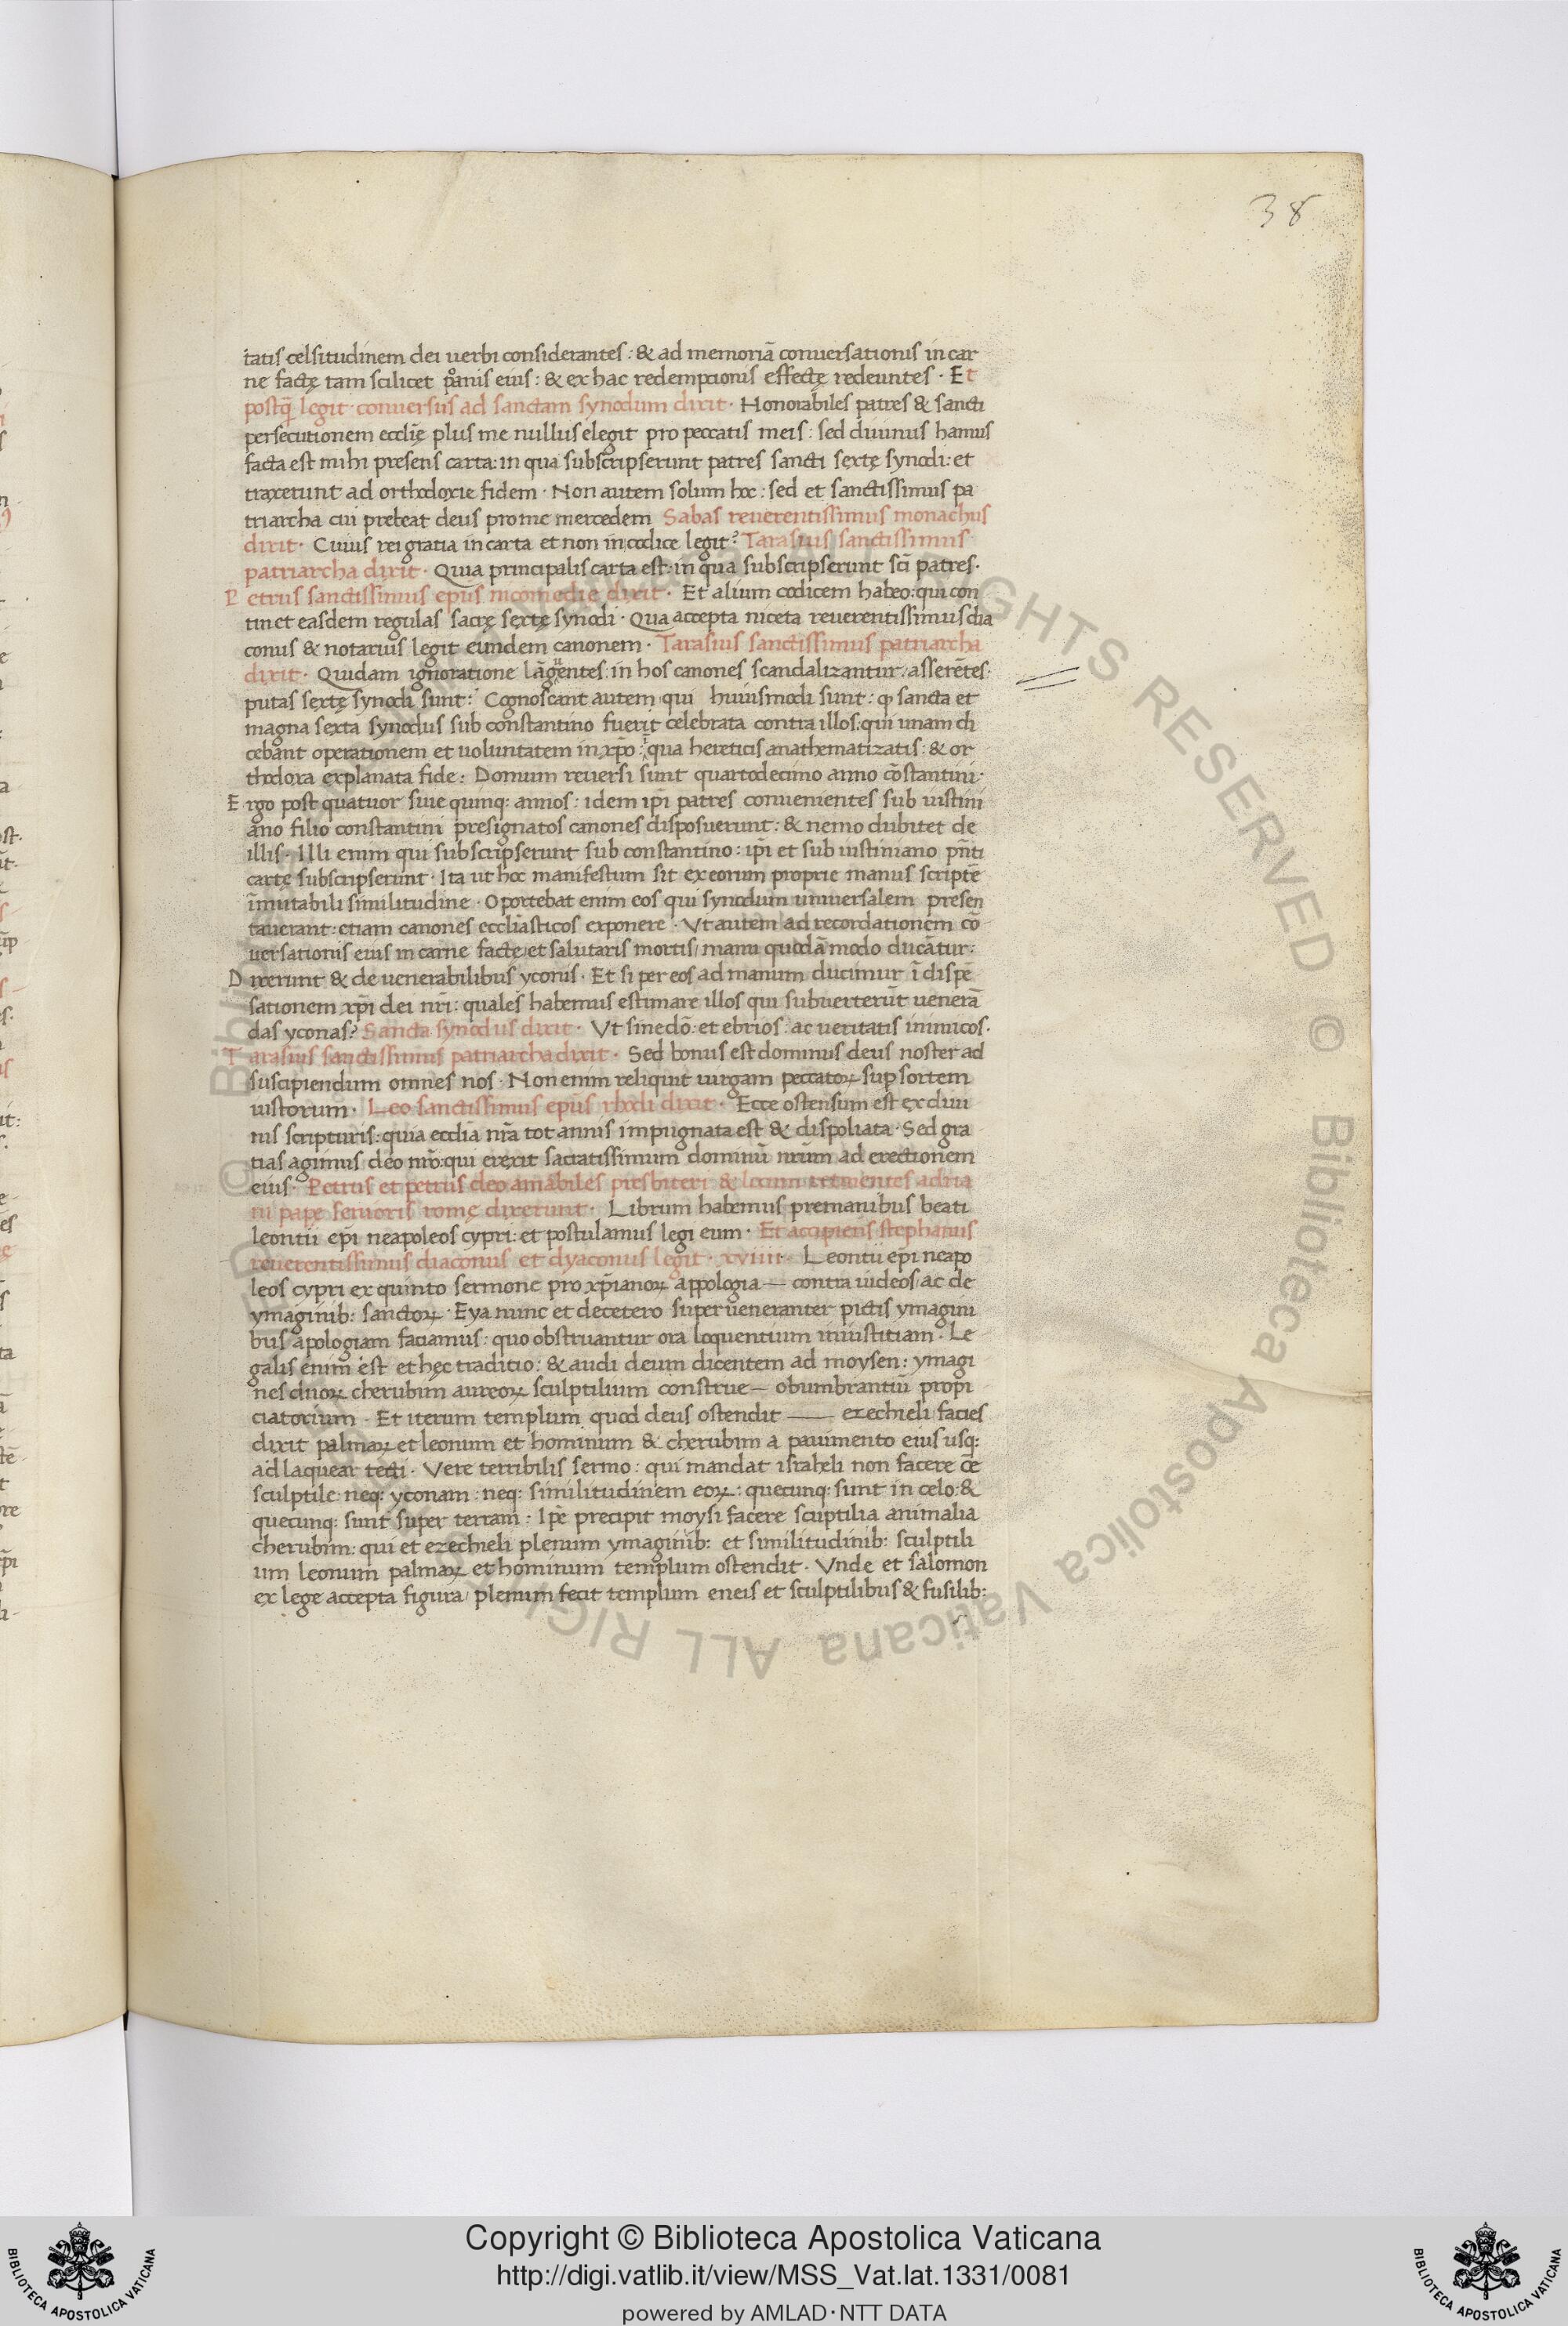 38
tatis celsitudinem dei uerbi considerantes : & ad memoriā conuersationis in car
ne factę tam scilicet eius : & ex hac redemptionis effectę redeuntes · Et
postq̄ legit conuersus ad sanctam synodum dixit · Honorabiles patres & sancti
persecutionem ecclīę plus me nullus elegit pro peccatis meis : sed diuinus hamus
facta est mihi presens carta : in qua subscripserunt patres sancti sextę synodi : et
traxerunt ad orthodoxie fidem · Non autem solum hoc : sed et sanctissimus pa
triarcha cui prebeat deus pro me mercedem Sabas reuerentissimus monachus
dixit · Cuius rei gratia in carta et non in codice legit ? Tarasius sanctissimus
patriarcha dixit · Quia principalis carta est : in qua subscripserunt sci̅ patres ·
Petrus sanctissimus ep̄us nicomedie dixit · Et alium codicem habeo : qui con
tinet easdem regulas sacrę sextę synodi · Qua accepta niceta reuerentissimus dia
conus & notarius legit eundem canonem · Tarasius sanctissimus patriarcha
dixit · Quidam ignoratione lāgentes : in hos canones scandalizantur / asserētes ·
putas sextę synodi sunt : Cognoscant autem qui huiusmodi sunt : ꝙ sancta et
magna sexta synodus sub constantino fuerit celebrata contra illos : qui unam di
cebant operationem et uoluntatem in xp̄o : ī qua hereticis anathematizatis : & or
thodoxa explanata fide : Domum reuersi sunt quartodecimo anno cōstantini ·
Ergo post quatuor siue quinq: annos : idem ip̄i patres conuenientes sub iustini
ano filio constantini presignatos canones disposuerunt : & nemo dubitet de
illis · Illi enim qui subscripserunt sub constantino : ip̄i et sub iustiniano pn̄ti
cartę subscripserunt · Ita ut hoc manifestum sit ex eorum proprie manus scripte
īmutabili similitudine · Oportebat enim eos qui synodum uniuersalem presen
tauerant : etiam canones eccl̄iasticos exponere · Vt autem ad recordationem cō
uersationis eius in carne factę et salutaris mortis / manu quodā modo ducātur :
Dixerunt & de uenerabilibus yconis · Et si per eos ad manum ducimur ī dispē
sationem xp̄i dei nr̄i : quales habemus estimare illos qui subuerterūt uenerā
das yconas ? Sancta synodus dixit · Vt sinedō : et ebrios : ac ueritatis inimicos ·
Tarasius sanctissimus patriarcha dixit · Sed bonus est dominus deus noster ad
suscipiendum omnes nos · Non enim reliqint uirgam peccatoꝝ sup sortem
iustorum · Leo sanctissimus ep̄us rhodi dixit · Ecce ostensum est ex diui
nis scripturis : quia eccl̄ia nr̄a tot annis impugnata est & dispoliata · Sed gra
tias agimus deo nr̄o : qui erexit sacratissimum dominū nr̄um ad erectionem
eius · Petrus et petrus deo amabiles presbiteri & locum retinentes adria
ni papę senioris romę dixerunt · Librum habemus pre manibus beati
leontii ep̄i neapoleos cypri : et postulamus legi eum · Et accipiens stephanus
reuerentissimus diaconus et dyaconus legit · xviiii · Leontii ep̄i neapo
leos cypri ex quinto sermone pro xp̄ianoꝝ appologia — contra iudeos / ac de
ymaginib: sanctoꝝ · Eya nunc et decetero super ueneranter pictis ymagini
bus apologiam faciamus : quo obstruantur ora loquentium iniustitiam · Le
galis enim est et hęc traditio : & audi deum dicentem ad moysen : ymagi
nes duoꝝ cherubim aureoꝝ sculptilium construe — obumbrantiū propi
ciatorium · Et iterum templum quod deus ostendit — ezechieli / facies
dixit palmaꝝ et leonum et hominum & cherubim a pauimento eius usq:
ad laquear tecti · Vere terribilis sermo : qui mandat israheli non facere oē
sculptile : neq: yconam : neq: similitudinem eoꝝ : quecunq: sunt in celo : &
quecunq: sunt super terram : Ip̄e precipit moysi facere scuptilia animalia
cherubim : qui et ezechieli plenum ymaginib: et similitudinib: sculptili
um leonum palmaꝝ et hominum templum ostendit · Vnde et salomon
ex lege accepta figura / plenum fecit templum eneis et sculptilibus & fusilib:
Copyright © Biblioteca Apostolica Vaticana
http://digi.vatlib.it/view/MSS_Vat.lat.1331/0081
powered by AMLAD · NTT DATA
BIBLIOTECA APOSTOLICA VATICANA
BIBLIOTECA APOSTOLICA VATICANA